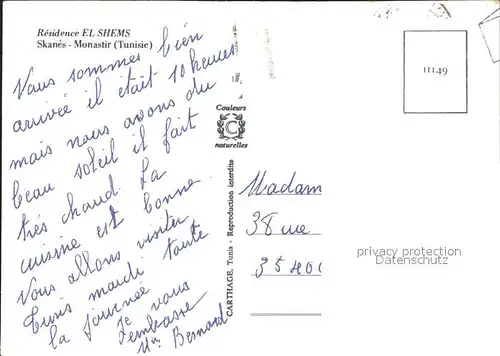 Résidence EL SHEMS
Skanés - Monastir (Tunisie)
Vous sommes bien
arrivée il était 10 heures
mais nous avons du
beau soleil il fait
trés chaud. La
cuisine est bonne.
Vous allons visiter
Tunis mardi toute
la journée
Je vous
embrasse
Mme Bernard
Couleurs
C
naturelles
CARTHAGE, Tunis - Reproduction interdite
11149
Madam
38 rue
35400
privacy protection
Datenschutz